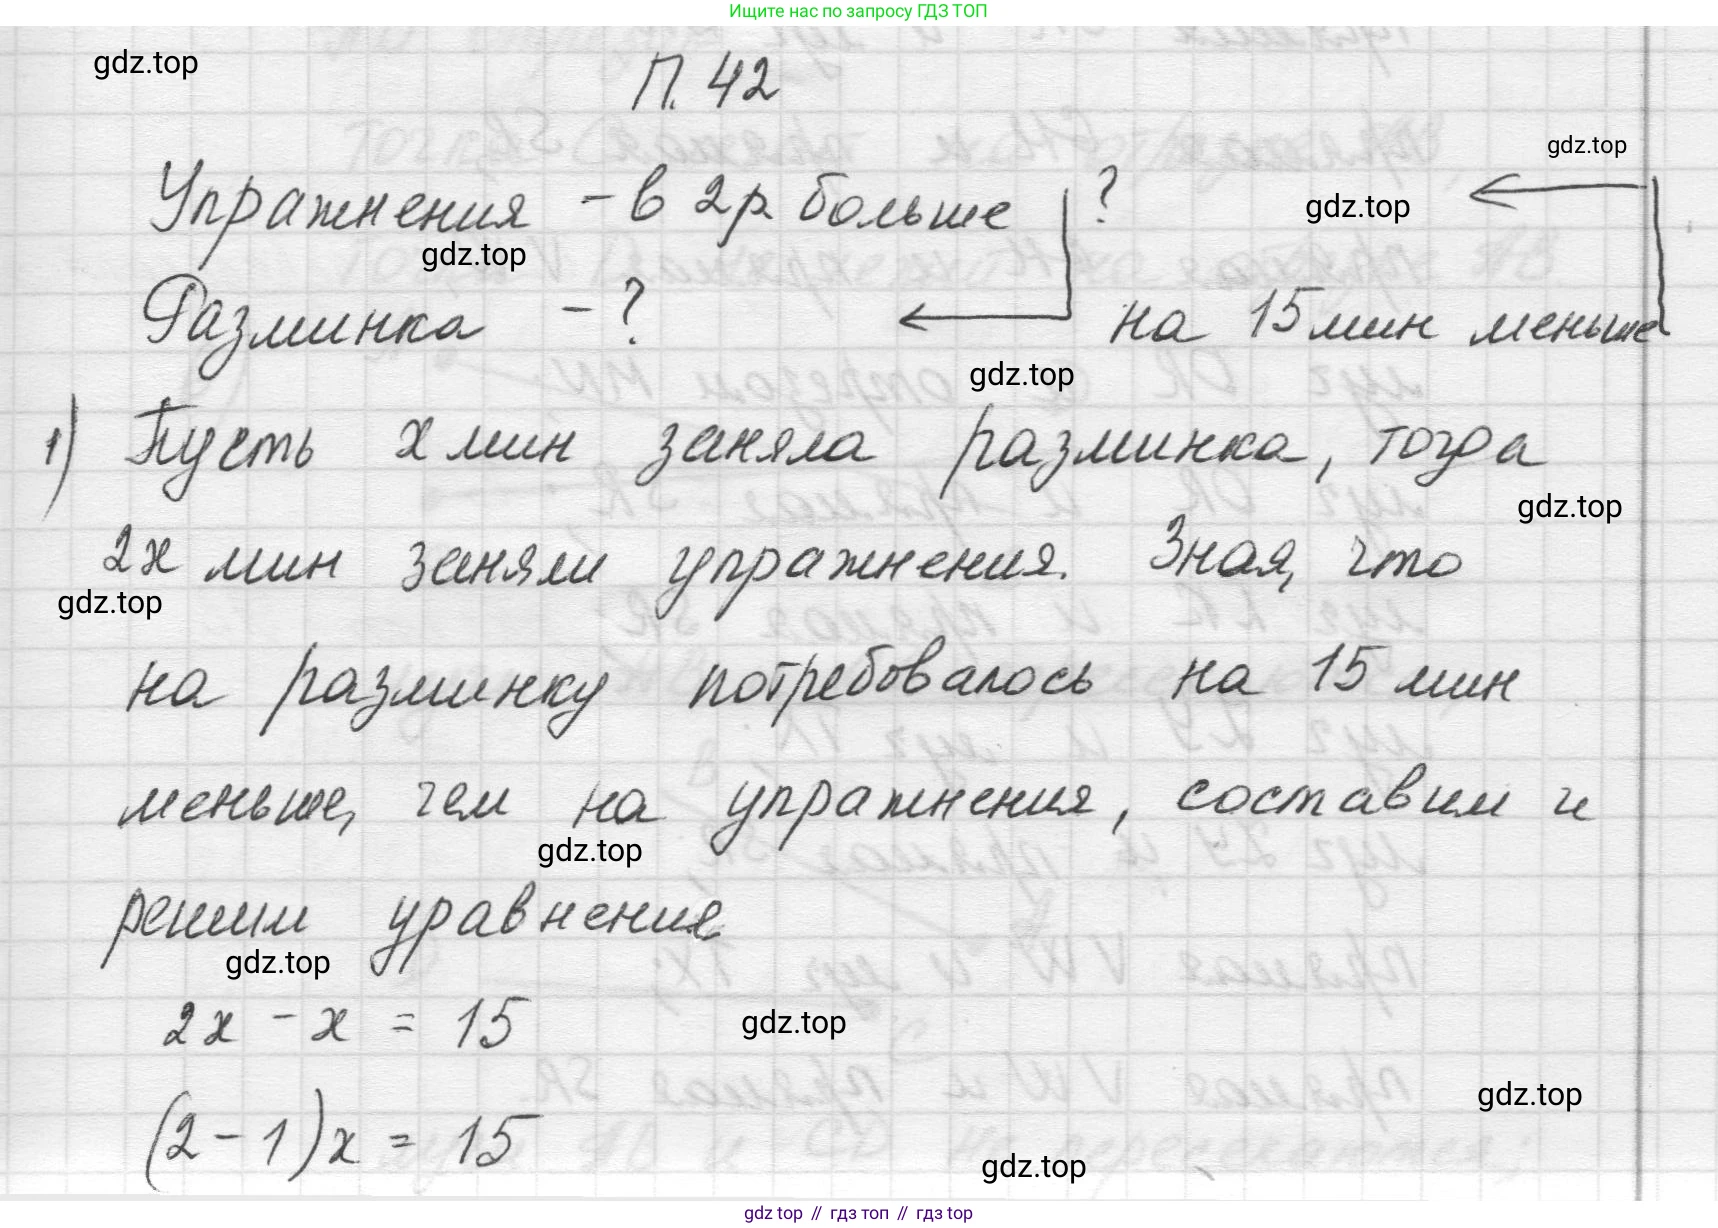 Ищите нас по запросу ГДЗ ТОП
gdz.top
П. 42
gdz.top
Упражнения – в 2 р. больше ?
gdz.top
gdz.top
Разминка – ? на 15 мин меньше
gdz.top
1) Пусть x мин заняла разминка, тогда
gdz.top
2x мин заняли упражнения. Зная, что
gdz.top
на разминку потребовалось на 15 мин
меньше, чем на упражнения, составим и
gdz.top
решим уравнение
gdz.top
2x – x = 15
gdz.top
gdz.top
(2 – 1)x = 15
gdz.top
gdz top // гдз топ // гдз top